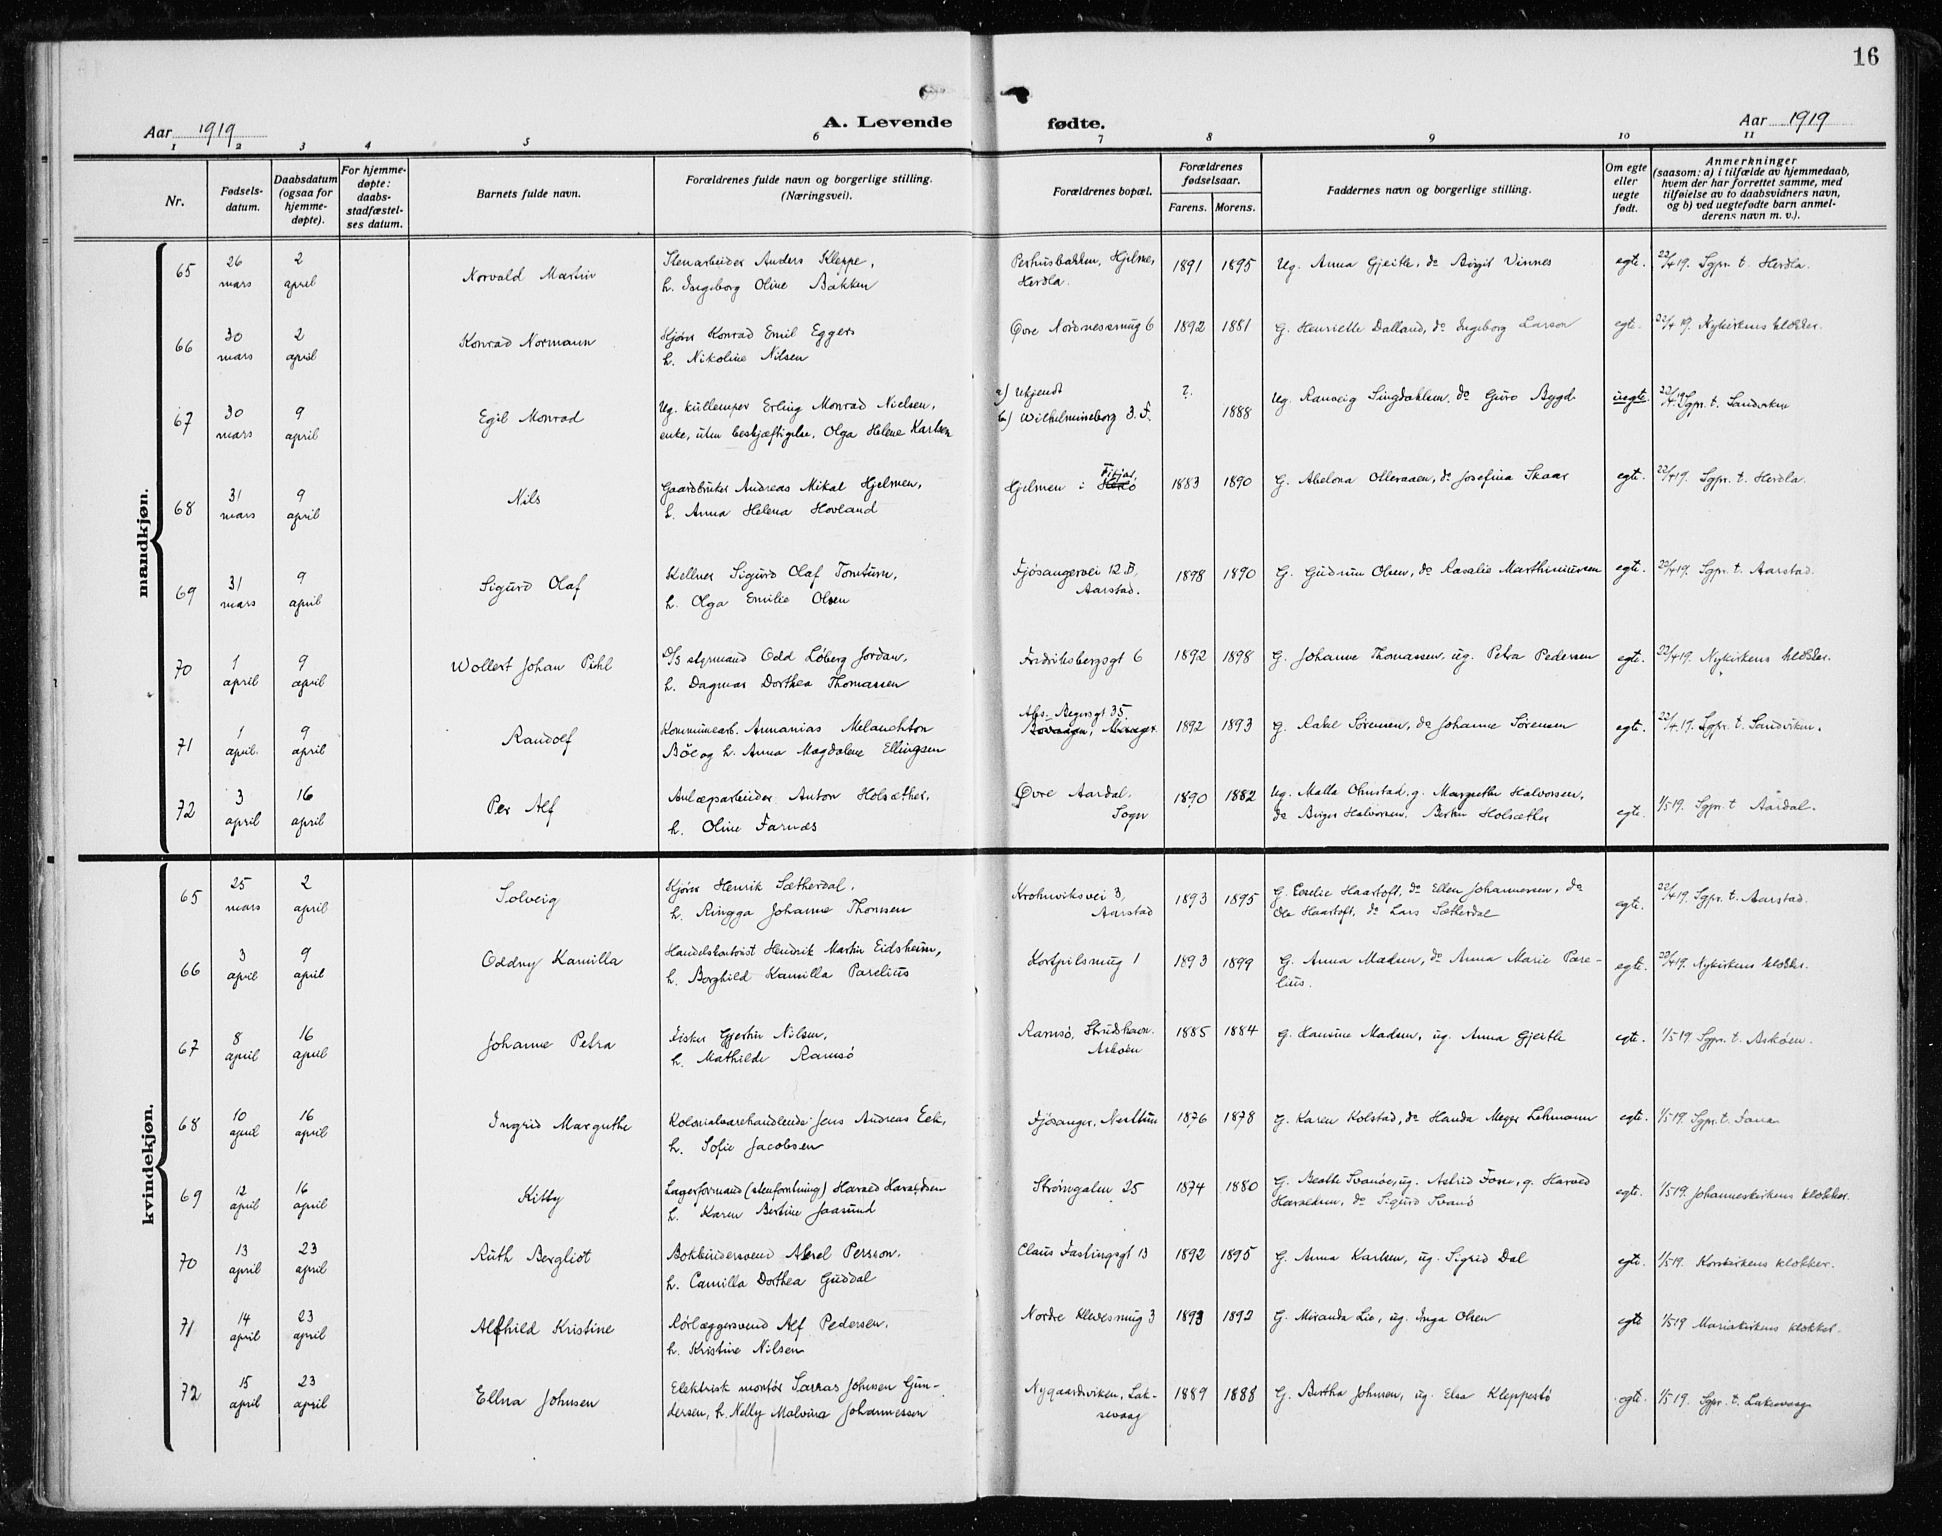 16
Aar 1919
A. Levende fødte.
Aar 1919
1 2 3 4 5 6 7 8 9 10 11
Nr.
Fødsels-
datum.
Daabsdatum
(ogsaa for
hjemme-
døpte).
For hjemme-
døpte:
daabs-
stadfæstel-
ses datum.
Barnets fulde navn.
Forældrenes fulde navn og borgerlige stilling.
(Næringsvei).
Forældrenes bopæl.
Forældrenes
fødselsaar.
Farens. Morens.
Faddernes navn og borgerlige stilling.
Om egte
eller
uegte
født.
Anmerkninger
(saasom: a) i tilfælde av hjemmedaab,
hvem der har forrettet samme, med
tilføielse av to daabsvidners navn,
og b) ved uegtefødte barn anmel-
derens navn m. v.).
mandkjøn.
65 26 mars 2 april Norvald Martin
Stenarbeider Anders Kleppe,
h. Ingeborg Oline Bakken
Perhusbakken, Hjelme,
Herdla.
1891 1895 Ug. Anna Gjeitle, do Birgit Vinnes egte. 22/4 19. Sgpr. t. Herdla.
66 30 mars 2 april Konrad Normann
Kjører Konrad Emil Eggers
h. Nikoline Nilsen
Øvre Nordnessmug 6 1892 1881 G. Henriette Dalland, do Ingeborg Larson egte. 22/4 19. Nykirkens klokker.
67 30 mars 9 april Egil Monrad
Ug. kullemper Erling Monrad Nielsen,
enke, uten beskjæftigelse, Olga Helene Karlsen
a) Ukjendt
b) Wilhelmineborg 3. F.
? 1888 Ug. Ranveig Singdahlem, do Guro Bygd uegte. 22/4 19 Sgpr. t. Sandviken
68 31 mars 9 april Nils
Gaardbruker Andreas Mikal Hjelmen,
h. Anna Helena Hovland
Hjelmen i Fitjar
1883 1890 G. Abelona Olleraaen, do Josefina Skaar egte. 22/4 19. Sgpr. t. Herdla.
69 31 mars 9 april Sigurd Olaf
Kellner Sigurd Olaf Tomturn,
h. Olga Emilie Olsen
Fjøsangervei 12 B,
Aarstad.
1898 1890 G. Gudrun Olsen, do Rasalie Marthiniussen egte. 22/4 19. Sgpr. t. Aarstad.
70 1 april 9 april Wollert Johan Pihl
D/S styrmand Odd Løberg Jordan,
h. Dagmar Dorthea Thomassen
Fredriksbergsgt 6 1892 1898 G. Johanne Thomassen, ug. Petra Pedersen egte. 22/4 19. Nykirkens klokker.
71 1 april. 9 april Randolf
Kommunearb. Annanias Melanchton
Bøe og h. Anna Magdalene Ellingsen
Abs. Begersgt 35
1892 1893 G. Rakel Sørensen, do Johanne Sørensen egte. 22/4 19. Sgpr. t. Sandviken.
72 3 april 16 april Per Alf
Anlægsarbeider Anton Holsæther,
h. Oline Farnæs
Øvre Aardal,
Sogn
1890 1882 Ug. Malla Ohnstad, g. Margrethe Halvorsen,
do Birger Halvorsen, Bertin Holsæther egte. 1/5 19. Sgpr. t Aardal.
kvindekjøn.
65 25 mars 2 april Solveig
Kjører Henrik Sætherdal,
h. Ringga Johanne Thomsen
Krohnviksvei 3,
Aarstad
1893 1895 G. Cecelie Haartoft, do Ellen Johannessen, do
Ole Haartoft, do Lars Sætherdal egte. 22/4 19. Sgpr. t. Aarstad.
66 3 april 9 april Oddny Kamilla
Handelskontorist Hendrik Martin Eidsheim,
h. Borghild Kamilla Parelius
Kortpilsmug 1 1893 1899 G. Anna Madsen, do Anna Marie Pare-
lius. egte. 22/4 19. Nykirkens klokker.
67 8 april 16 april Johanne Petra
Fisker Gjertin Nilsen,
h. Mathilde Ramsø
Ramsø, Strudshavn.
Askøen
1885 1884 G. Hansine Madsen, ug. Anna Gjeitle egte. 1/5 19 Sgpr. t. Askøen.
68 10 april 16 april Ingrid Margrethe
Kolonialvarehandlende Jens Andreas Eek,
h. Sofie Jacobsen
Fjøsanger, Nesttun 1876 1878 G. Karen Kolstad, do Handa Meyer Lehmann egte. 1/5 19. Sgpr. t. Fana
69 12 april 16 april Kitty
Lagerformand (stenforretning) Harald Haraldsen
h. Karen Bertine Jaasund
Strømgaten 25 1874 1880 G. Beathe Svanøe, ug. Astrid Fosse, g. Harald
Haraldsen, do Sigurd Svanø egte. 1/5 19. Johanneskirkens klokker.
70 13 april 23 april Ruth Bergliot
Bokbindersvend Aksel Persson,
h. Camilla Dorthea Guddal
Claus Fastingsgt 13 1892 1895 G. Anna Karlsen, ug. Sigrid Dal egte. 1/5 19. Korskirkens klokker.
71 14 april 23 april Alfhild Kristine
Rørlæggersvend Alf Pedersen,
h. Kristine Nilsen
Nordre Klevesmug 3 1893 1892 G. Miranda Lie, ug. Inga Olsen egte 1/5 19 Mariakirkens klokker.
72 15 april 23 april Ellna Johnsen
Elektrisk montør Sarras Johnsen Gun-
dersen, h. Nelly Malvina Johannessen
Nygaardsviken, Lak-
sevaag
1889 1888 G. Bertha Johnsen, ug. Elsa Kleppestø egte. 1/5 19. Sgpr. t. Laksevaag